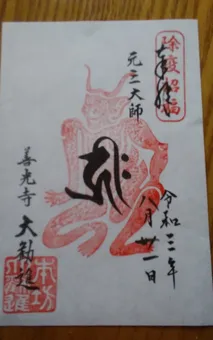 奉拝
除疫招福
元三大師
令和三年
八月廿一日
善光寺
大勧進